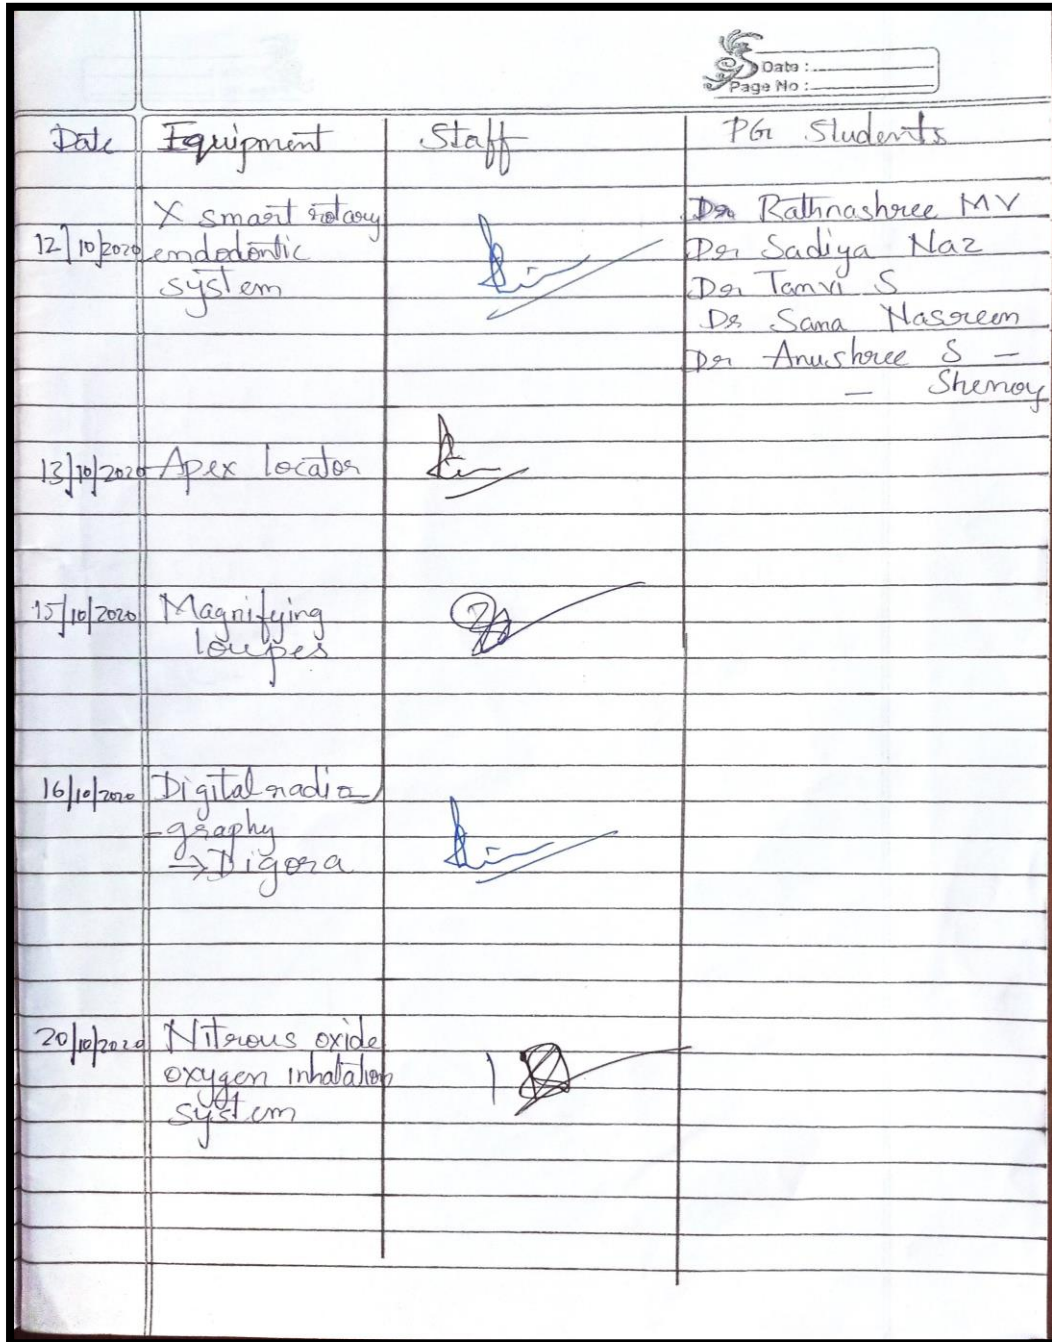 Date :
Page No :
Date Equipment Staff PG Students
X smart rotary
12/10/2020 endodontic
system
Dr Rathnashree MV
Dr Sadiya Naz
Dr Tanvi S
Dr Sana Nasreen
Dr Anushree S —
— Shenoy
13/10/2020 Apex locator
15/10/2020 Magnifying
loupes
16/10/2020 Digital radio
- graphy
→ Digora
20/10/2020 Nitrous oxide
oxygen inhalation
system